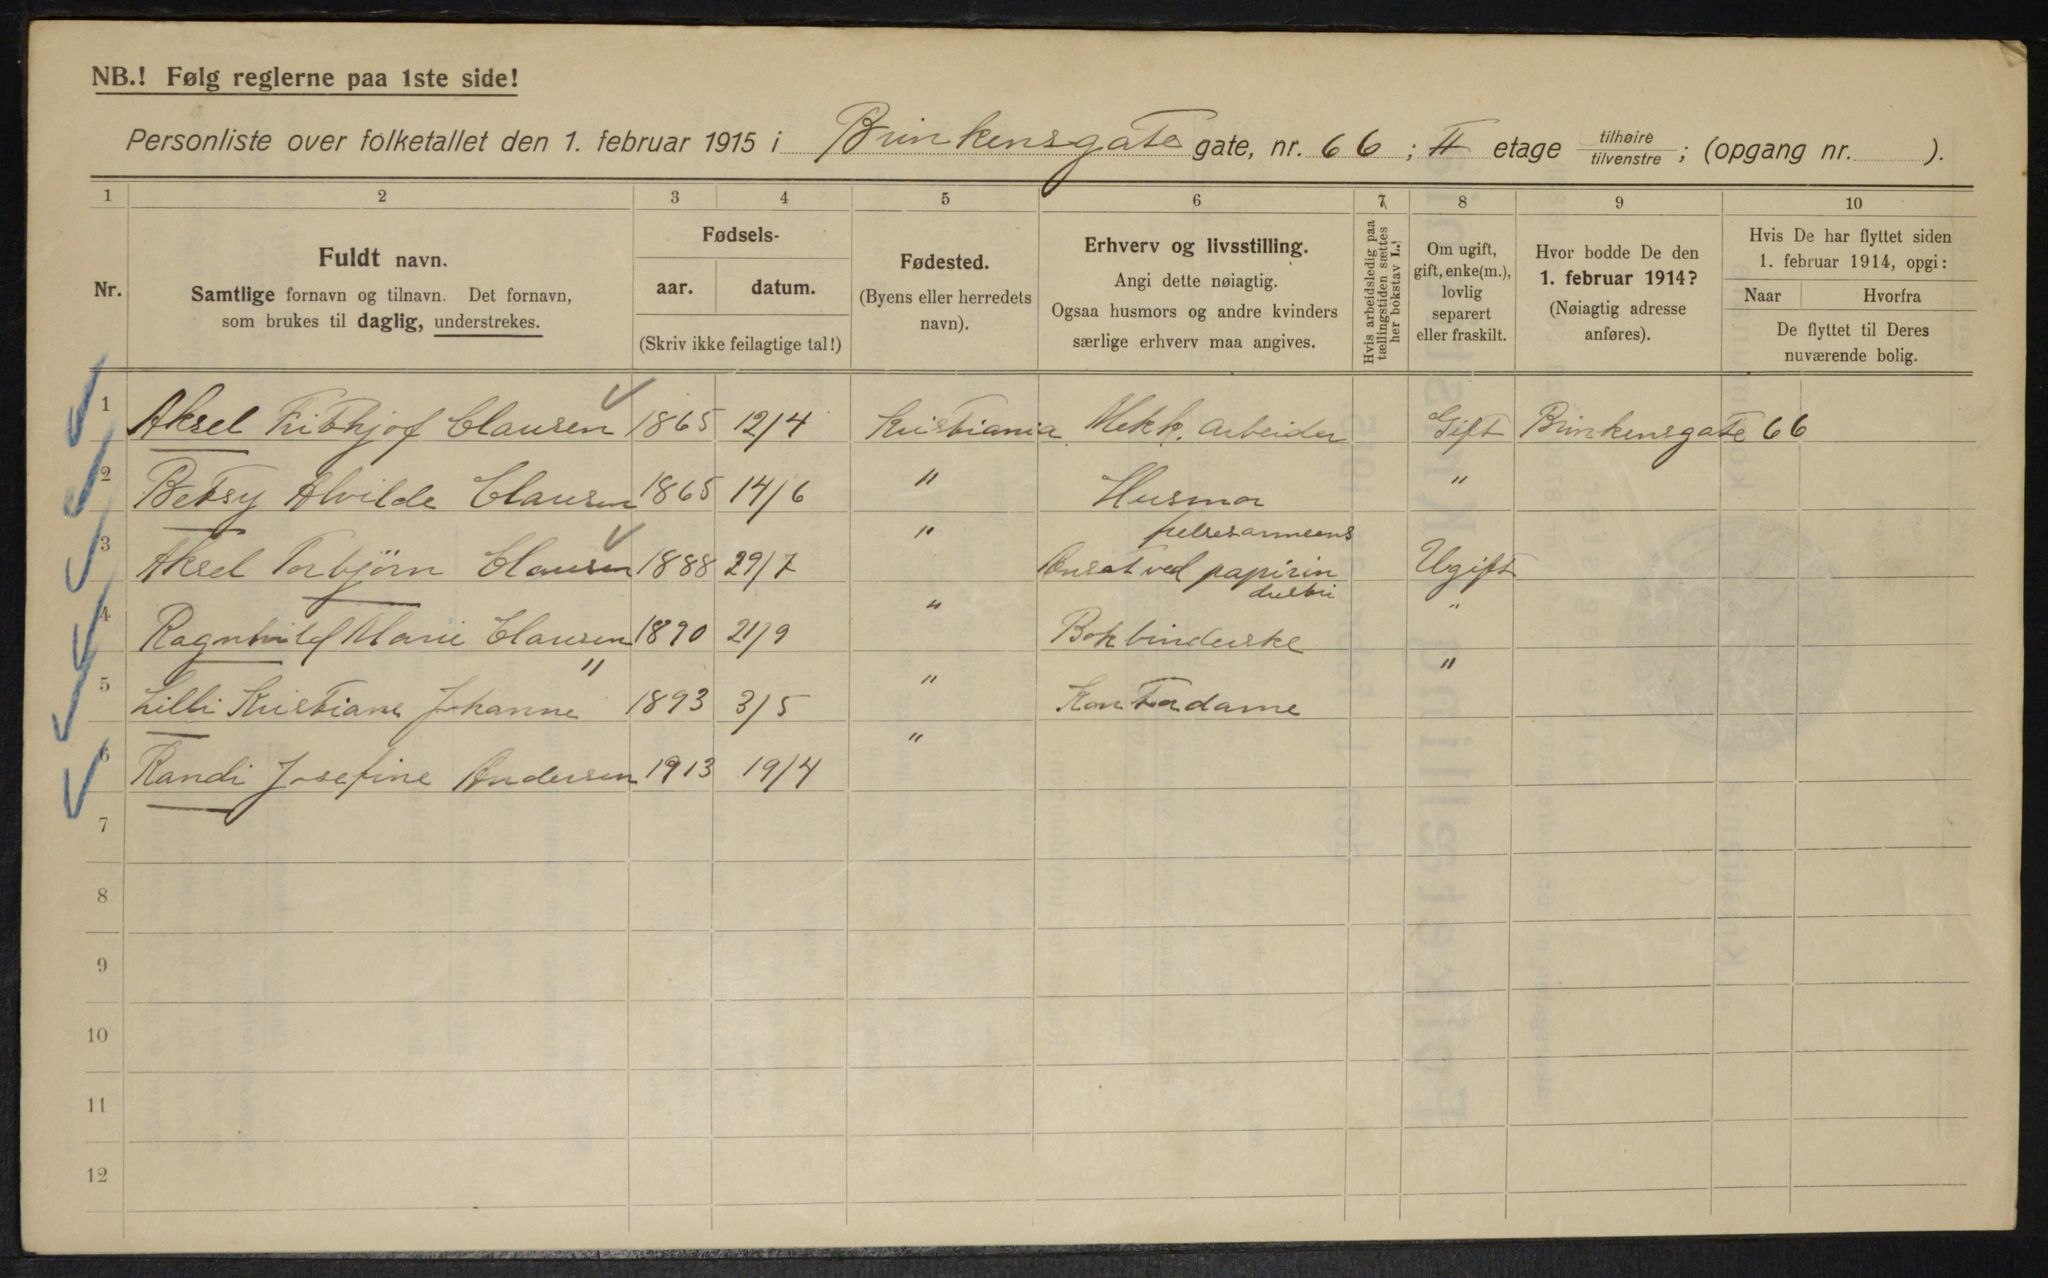 NB.! Følg reglerne paa 1ste side!
Personliste over folketallet den 1. februar 1915 i Brinkensgate gate, nr. 66 ; II etage tilhøire/tilvenstre ; (opgang nr. ).
1 2 3 4 5 6 7 8 9 10
Nr.
Fuldt navn.
Samtlige fornavn og tilnavn. Det fornavn,
som brukes til daglig, understrekes.
Fødsels-
aar. datum.
(Skriv ikke feilagtige tal!)
Fødested.
(Byens eller herredets
navn).
Erhverv og livsstilling.
Angi dette nøiagtig.
Ogsaa husmors og andre kvinders
særlige erhverv maa angives.
Hvis arbeidsledig paa
tællingstiden sættes
her bokstav L.!
Om ugift,
gift, enke(m.),
lovlig
separert
eller fraskilt.
Hvor bodde De den
1. februar 1914?
(Nøiagtig adresse
anføres).
Hvis De har flyttet siden
1. februar 1914, opgi:
Naar Hvorfra
De flyttet til Deres
nuværende bolig.
1 Aksel Fithjof Clausen 1865 12/4 Kristiania Mekk. Arbeider Gift Brinkensgate 66
2 Betsy Alvilde Clausen 1865 14/6 " Husmor "
3 Aksel Torbjørn Clausen 1888 29/7 " Ansat ved papirin Ugift
dustri
4 Ragnhild Marie Clausen 1890 21/9 " Bokbinderske "
5 Lilli Kristiane Johanne " 1893 3/5 " Kontordame "
6 Randi Josefine Andersen 1913 19/4 "
7
8
9
10
11
12